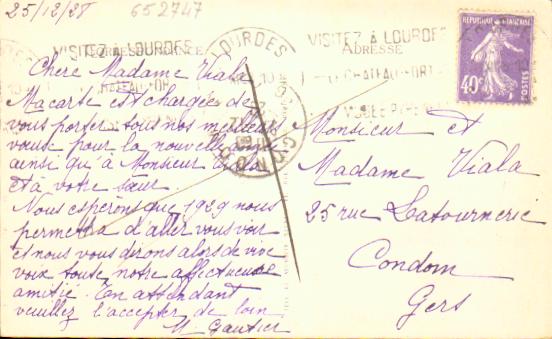 25/12/28
652747
VISITEZ À LOURDES
LOURDES
VISITEZ À LOURDES
CORRESPONDANCE
ADRESSE
CHATEAU-FORT
CHATEAU-FORT
RÉPUBLIQUE FRANÇAISE
40c
POSTES
Chere Madame Viala
Ma carte est chargée de
vous porter tous nos meilleurs
vœux pour la nouvelle année
ainsi qu'à Monsieur Viala
et à votre sœur.
Nous espérons que 1929 nous
permettra d'aller vous voir
et nous vous dirons alors de vive
voix toute notre affectueuse
amitié. En attendant
veuillez l'accepter de loin
M. Gautier
Monsieur et
Madame Viala
25 rue Latournerie
Condom
Gers